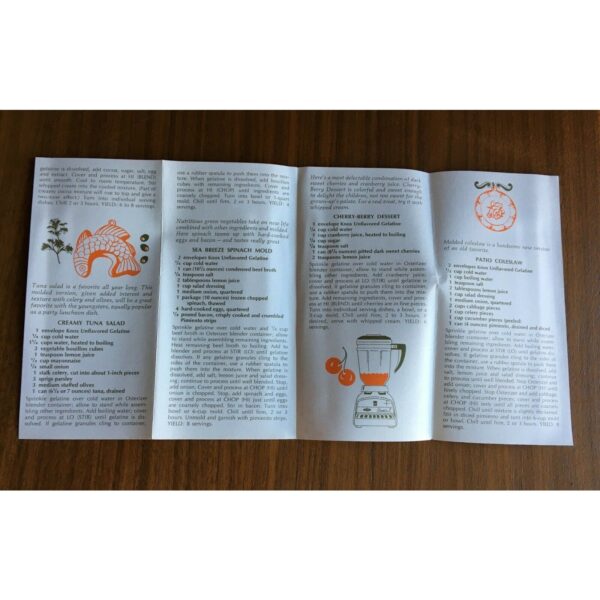 gelatine is dissolved, add cocoa, sugar, salt, egg
and extract. Cover and process at HI (BLEND)
until smooth. Cool to room temperature. Stir
whipped cream into the cooled mixture. Part of
creamy cocoa mixture will rise to top and give a
two-tone effect.) Turn into individual serving
dishes. Chill 2 or 3 hours. YIELD: 6 to 8 servings.
Tuna salad is a favorite all year long. This
molded version, given added interest and
texture with celery and olives, will be a great
favorite with the youngsters, equally popular
as a party luncheon dish.
CREAMY TUNA SALAD
1 envelope Knox Unflavored Gelatine
¼ cup cold water
1¼ cups water, heated to boiling
2 vegetable bouillon cubes
1 teaspoon lemon juice
¼ cup mayonnaise
¼ small onion
1 stalk celery, cut into about 1-inch pieces
3 sprigs parsley
3 medium stuffed olives
1 can (6½ or 7 ounces) tuna, drained
Sprinkle gelatine over cold water in Osterizer
blender container; allow to stand while assem-
bling other ingredients. Add boiling water; cover
and process at LO (STIR) until gelatine is dis-
solved. If gelatine granules cling to container,
use a rubber spatula to push them into the mix-
ture. When gelatine is dissolved, add bouillon
cubes with remaining ingredients. Cover and
process at HI (CHOP) until ingredients are
coarsely chopped. Turn into bowl or 1-quart
mold. Chill until firm, 2 or 3 hours. YIELD: 4
servings.
Nutritious green vegetables take on new life
combined with other ingredients and molded.
Here spinach teams up with hard-cooked
eggs and bacon — and tastes really great.
SEA BREEZE SPINACH MOLD
2 envelopes Knox Unflavored Gelatine
¼ cup cold water
1 can (10½ ounces) condensed beef broth
¼ teaspoon salt
2 tablespoons lemon juice
1 cup salad dressing
1 medium onion, quartered
1 package (10 ounces) frozen chopped
spinach, thawed
4 hard-cooked eggs, quartered
½ pound bacon, crisply cooked and crumbled
Pimiento strips
Sprinkle gelatine over cold water and ½ cup
beef broth in Osterizer blender container; allow
to stand while assembling remaining ingredients.
Heat remaining beef broth to boiling. Add to
blender and process at STIR (LO) until gelatine
dissolves. If any gelatine granules cling to the
sides of the container, use a rubber spatula to
push them into the mixture. When gelatine is
dissolved, add salt, lemon juice and salad dress-
ing; continue to process until well blended. Stop.
Add onion. Cover and process at CHOP (HI) until
onion is chopped. Stop, add spinach and eggs,
cover and process at CHOP (HI) just until eggs
are coarsely chopped. Stir in bacon. Turn into
bowl or 6-cup mold. Chill until firm, 2 or 3
hours. Unmold and garnish with pimiento strips.
YIELD: 8 servings.
Here's a most delectable combination of dark
sweet cherries and cranberry juice. Cherry-
Berry Dessert is colorful and sweet enough
to delight the children, not too sweet for the
grown-up's palate. For a real treat, try it with
whipped cream.
CHERRY-BERRY DESSERT
1 envelope Knox Unflavored Gelatine
¼ cup cold water
1 cup cranberry juice, heated to boiling
¼ cup sugar
⅛ teaspoon salt
1 can (8¾ ounces) pitted dark sweet cherries
2 teaspoons lemon juice
Sprinkle gelatine over cold water in Osterizer
blender container; allow to stand while assem-
bling other ingredients. Add cranberry juice;
cover and process at LO (STIR) until gelatine is
dissolved. If gelatine granules cling to container,
use a rubber spatula to push them into the mix-
ture. Add remaining ingredients, cover and process
at HI (BLEND) until cherries are in small pieces.
Turn into individual serving dishes, a bowl, or a
mold. Chill until firm, 2 or 3 hours. If
desired, serve with whipped cream. YIELD: 4
servings.
Molded coleslaw is a handsome new version
of an old favorite.
PATIO COLESLAW
2 envelopes Knox Unflavored Gelatine
cup cold water
cup boiling water
1 teaspoon salt
2 tablespoons lemon juice
1 cup salad dressing
1 medium onion, quartered
cups cabbage pieces
1 cup celery pieces
cup cucumber pieces (peeled)
1 can (4 ounces) pimiento, drained and diced
Sprinkle gelatine over cold water in Osterizer
blender container; allow to stand while assem-
bling other ingredients. Add boiling water,
cover and process at STIR (LO) until gelatine
dissolves. If any gelatine granules cling to the
sides of the container, use a rubber spatula to
push them into the mixture. When gelatine is dissolved,
add salt, lemon juice and salad dressing; continue
to process until well blended. Stop and add
onion, cover and process at CHOP (HI) until
finely chopped. Stop Osterizer and add cabbage,
celery and cucumber pieces; cover and process
at CHOP (HI) only until all pieces are coarsely
chopped. Chill until mixture is slightly thickened.
Stir in diced pimiento and turn into 6-cup mold
or bowl. Chill until firm, 2 or 3 hours. YIELD: 8
servings.